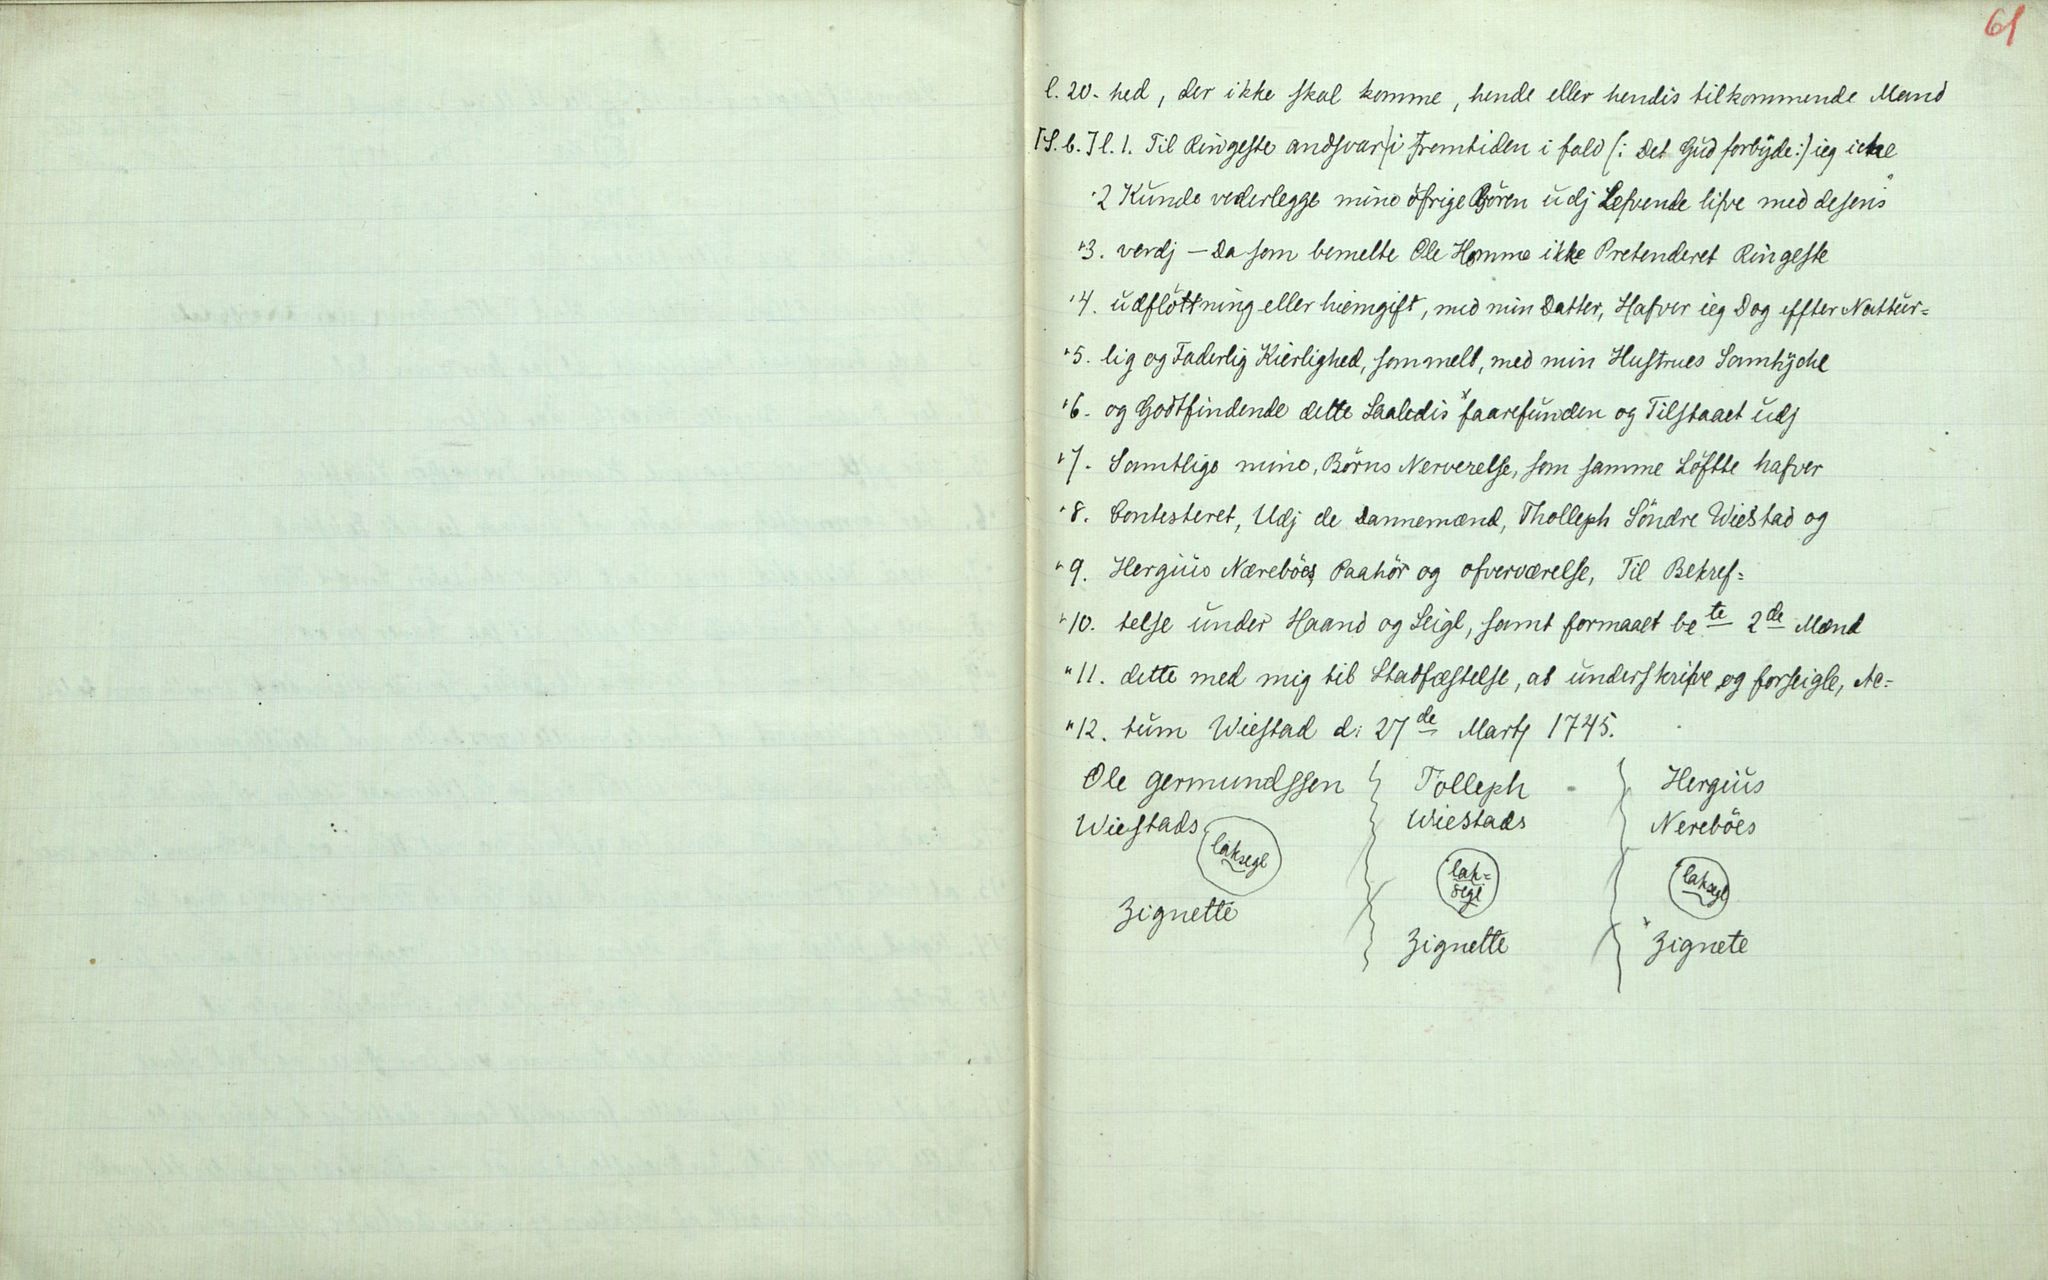 61
l. 20. hed, der ikke skal komme, hende eller hendis tilkommende Mand
[S. b.] l. 1. Til Ringeste andsvar i Fremtiden i fald (: Det Gud forbÿde :) ieg icke
"2 Kunde vederlegge mine öfrige Bören udj Lefvende lifve med desens
"3. verdj — Da som bemelte Ole Homme ikke Pretenderet Ringeste
"4. udflöttning eller hiemgift, med min Datter, Hafver ieg Dog effter Nattur=
"5. lig og Faderlig Kierlighed, sommelt, med min Hustrues Samtÿcke
"6. og Godtfindende dette Saaledis faarefunden og Tilstaaet udj
"7. Samtlige mine, Börns Nerverelse, som samme Löftte hafver
"8. Contesteret, Udj de Dannemænd, Tholleph Söndre Wiestad og
"9. Hergius Næreböes Paahör og ofverværelse, Til Bekref=
"10. telse under Haand og Seigl, samt formaaet be te 2 de Mænd
"11. dette med mig til Stadfæstelse, at underskrifve og forseigle, Ac=
"12. tum Wiestad d: 27 de Martj 1745.
Ole germundssen Tolleph Hergius
Wiestads Wiestads Nereböes
laksegl lak=
segl laksegl
Zignette Zignette Zignete